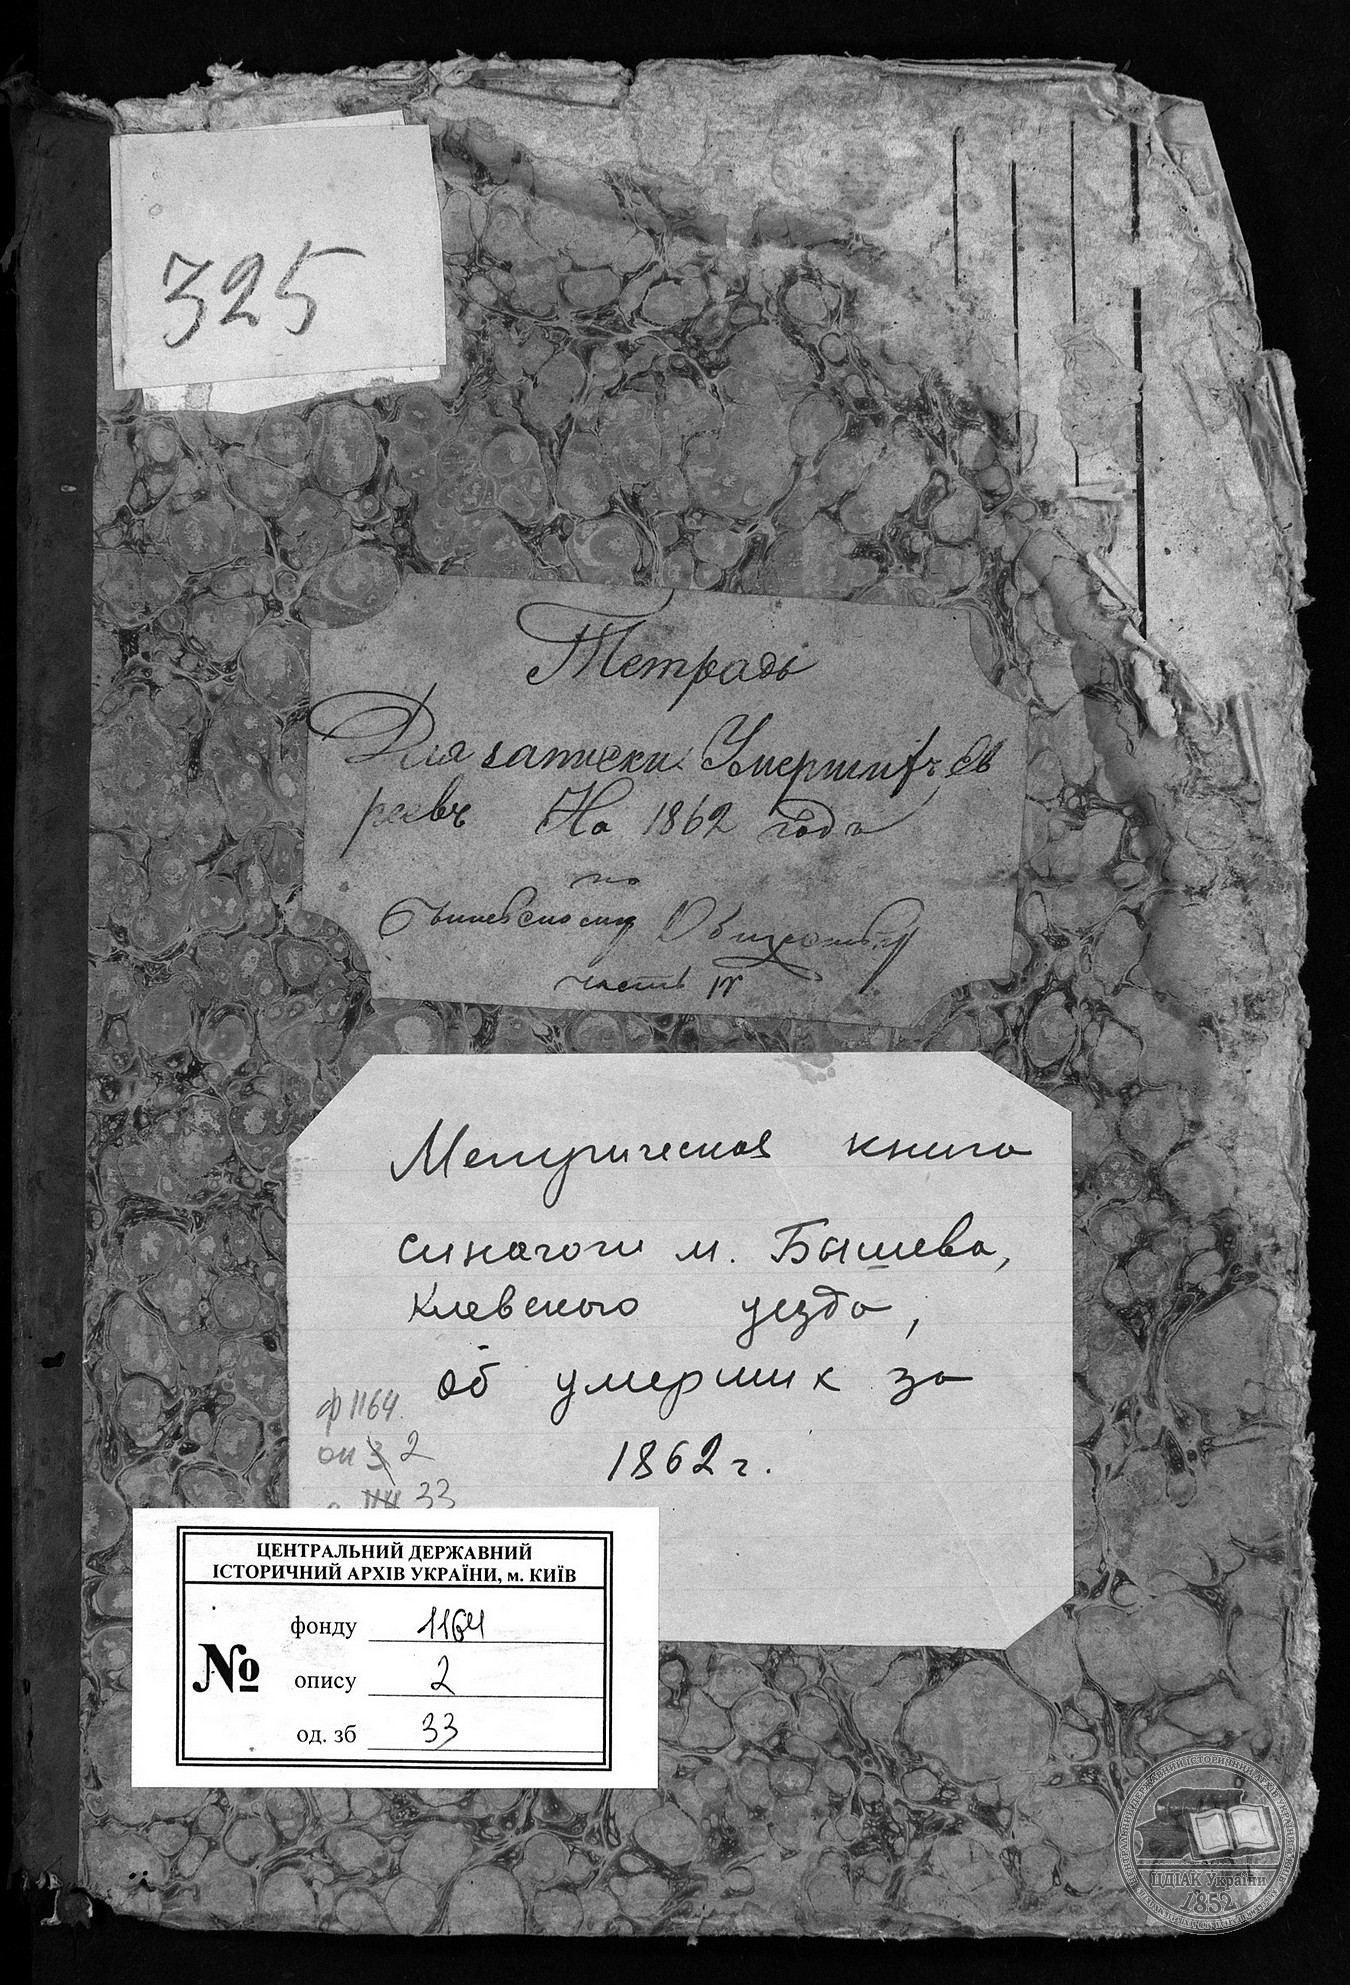 325
Тетрадь
Для записки Умершихъ Ев
реевъ На 1862 годъ
по
Бышевскому Обществу
часть IV
Метрическая книга
синагоги м. Бышева,
Киевского уезда,
об умерших за
1862 г.
ф 1164
оп 3 2
33
ЦЕНТРАЛЬНИЙ ДЕРЖАВНИЙ
ІСТОРИЧНИЙ АРХІВ УКРАЇНИ, м. КИЇВ
№
фонду 1164
опису 2
од. зб 33
ЦЕНТРАЛЬНИЙ ДЕРЖАВНИЙ ІСТОРИЧНИЙ АРХІВ УКРАЇНИ
ЦДІАК України
1852